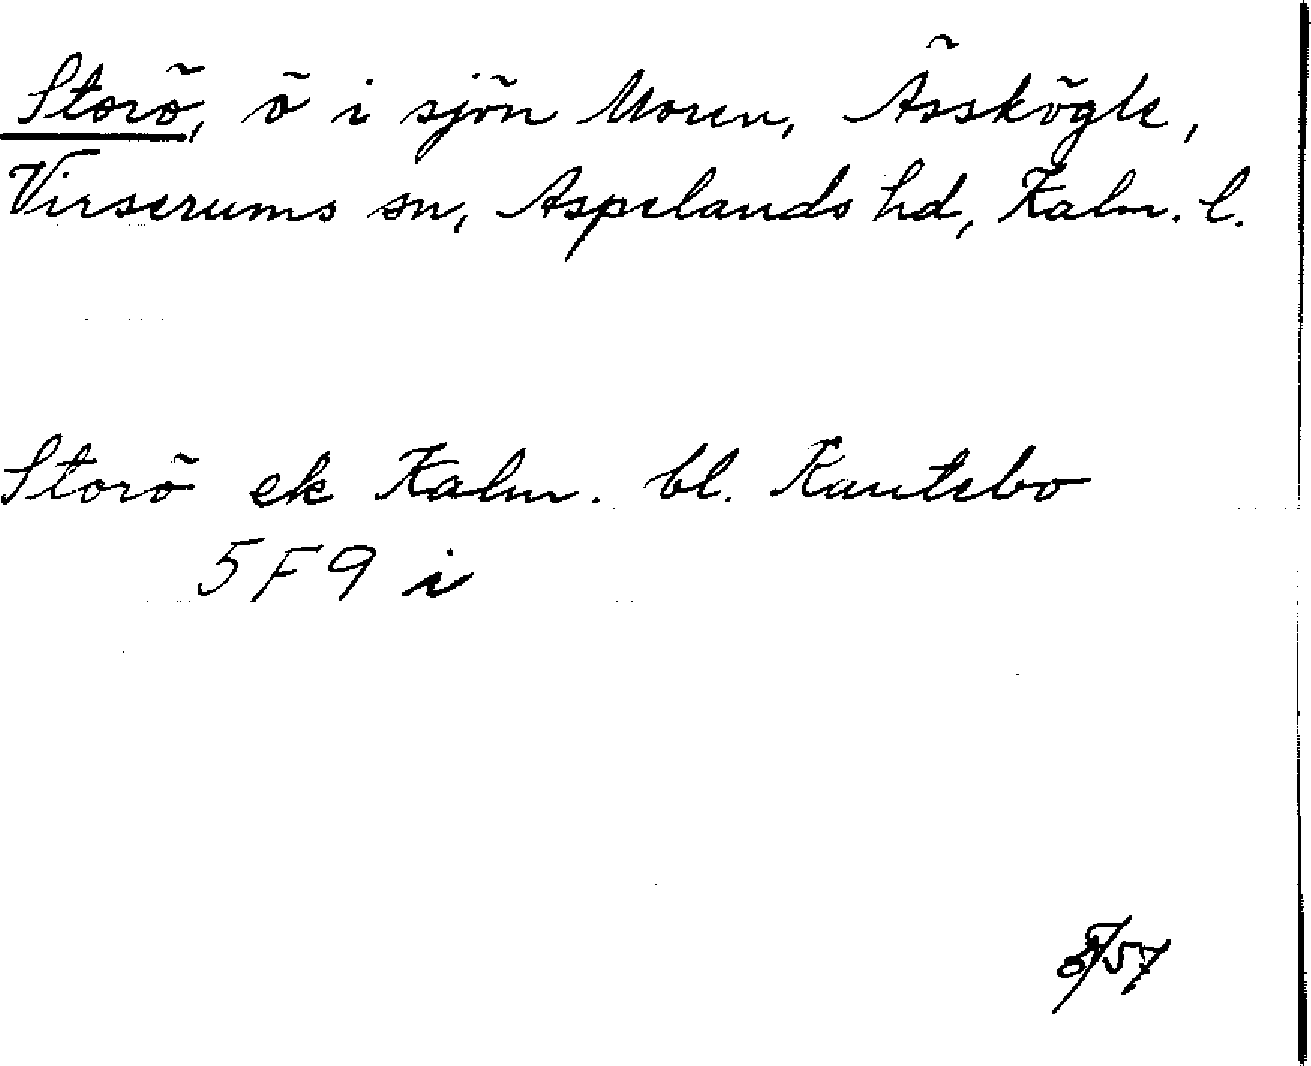 Storö, ö i sjön Moren, Ässkögle,
Virserums sn, Aspelands hd, Kalm. l.
Storö ek Kalm. bl. Kantebo
5F9 i